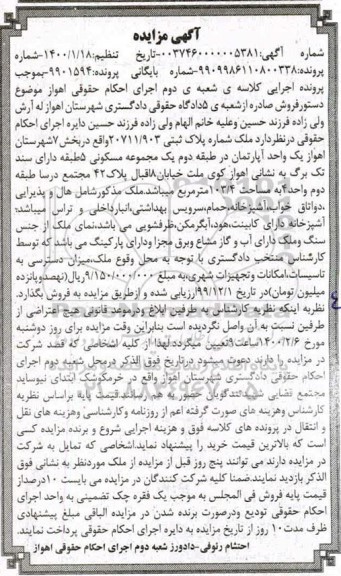 آگهی مزایده
شماره آگهی:۰۰۳۷۴۶۰۰۰۰۰۰۵۳۸۱-تاریخ تنظیم:۱۴۰۰/۱/۱۸-شماره
پرونده:۹۹۰۹۹۸۶۱۱۰۸۰۰۳۳۸-شماره بایگانی پرونده:۹۹۰۱۵۹۴-بموجب
پرونده اجرایی کلاسه ی شعبه ی دوم اجرای احکام حقوقی اهواز موضوع
دستورفروش صادره ازشعبه ی ۵دادگاه حقوقی دادگستری شهرستان اهواز له آرش
ولی زاده فرزند حسین وعلیه خانم الهام ولی زاده فرزند حسین دایره اجرای احکام
حقوقی درنظردارد ملک شماره پلاک ثبتی ۲۰۷۱۱/۹۰۳واقع دربخش۷شهرستان
اهواز یک واحد آپارتمان در طبقه دوم یک مجموعه مسکونی ۵طبقه دارای سند
تک برگ به نشانی اهواز کوی ملت خیابان۸اقبال پلاک۴۲ مجتمع درسا طبقه
دوم واحد۴به مساحت ۱۰۳/۴مترمربع میباشد.ملک مذکورشامل هال و پذیرایی
،دواتاق خواب،آشپزخانه،حمام،سرویس بهداشتی،انبارداخلی و تراس میباشد؛
آشپزخانه دارای کابینت،هود،آبگرمکن،ظرفشویی می باشد،نمای ملک از جنس
سنگ وملک دارای آب و گاز مشاع وبرق مجزا ودارای پارکینگ می باشد که توسط
کارشناس منتخب دادگستری با توجه به محل وقوع ملک،میزان دسترسی به
تاسیسات،امکانات وتجهیزات شهری،به مبلغ ۹/۱۵۰/۰۰۰/۰۰۰ریال(نهصدوپانزده
میلیون تومان)در تاریخ ۹۹/۱۲/۱ارزیابی شده و ازطریق مزایده به فروش بگذارد.
نظربه اینکه نظریه کارشناس به طرفین ابلاغ ودرموعد قانونی هیچ اعتراضی از
طرفین نسبت به آن واصل نگردیده است بنابراین وقت مزایده برای روز دوشنبه
مورخ ۱۴۰۰/۲/۶ساعت۹تعیین میگردد.لهذا از کلیه اشخاصی که قصد شرکت
در مزایده را دارند دعوت میشود درتاریخ فوق الذکر درمحل شعبه دوم اجرای
احکام حقوقی دادگستری شهرستان اهواز واقع در خرمکوشک ابتدای نیوساید
مجتمع قضایی شماره
کارشناس وهزینه های صورت گرفته اعم از روزنامه وکارشناسی وهزینه های نقل
و انتقال در پرونده های کلاسه فوق و هزینه اجرایی شروع و برنده مزایده کسی
است که بالاترین قیمت خرید را پیشنهاد نماید.اشخاصی که تمایل به شرکت
در مزایده دارند می توانند پنج روز قبل از مزایده از ملک موردنظر به نشانی فوق
الذکر بازدید نمایند.ضمنا کلیه شرکت کنندگان در مزایده می بایست ۱۰درصداز
قیمت پایه فروش فی المجلس به موجب یک فقره چک تضمینی به واحد اجرای
احکام حقوقی تودیع ودرصورت برنده شدن در مزایده الباقی مبلغ پیشنهادی
ظرف مدت۱۰ روز از تاریخ مزایده به دایره اجرای احکام حقوقی پرداخت نمایند.
احتشام رئوفی-دادورز شعبه دوم اجرای احکام حقوقی اهواز